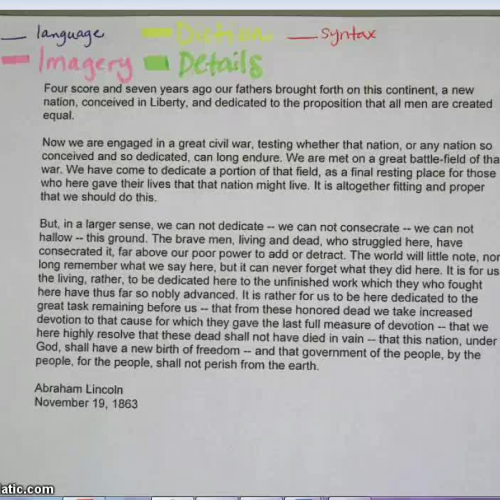 language Diction syntax
Imagery Details
Four score and seven years ago our fathers brought forth on this continent, a new
nation, conceived in Liberty, and dedicated to the proposition that all men are created
equal.
Now we are engaged in a great civil war, testing whether that nation, or any nation so
conceived and so dedicated, can long endure. We are met on a great battle-field of tha
war. We have come to dedicate a portion of that field, as a final resting place for those
who here gave their lives that that nation might live. It is altogether fitting and proper
that we should do this.
But, in a larger sense, we can not dedicate -- we can not consecrate -- we can not
hallow -- this ground. The brave men, living and dead, who struggled here, have
consecrated it, far above our poor power to add or detract. The world will little note, nor
long remember what we say here, but it can never forget what they did here. It is for us
the living, rather, to be dedicated here to the unfinished work which they who fought
here have thus far so nobly advanced. It is rather for us to be here dedicated to the
great task remaining before us -- that from these honored dead we take increased
devotion to that cause for which they gave the last full measure of devotion -- that we
here highly resolve that these dead shall not have died in vain -- that this nation, under
God, shall have a new birth of freedom -- and that government of the people, by the
people, for the people, shall not perish from the earth.
Abraham Lincoln
November 19, 1863
atic.com